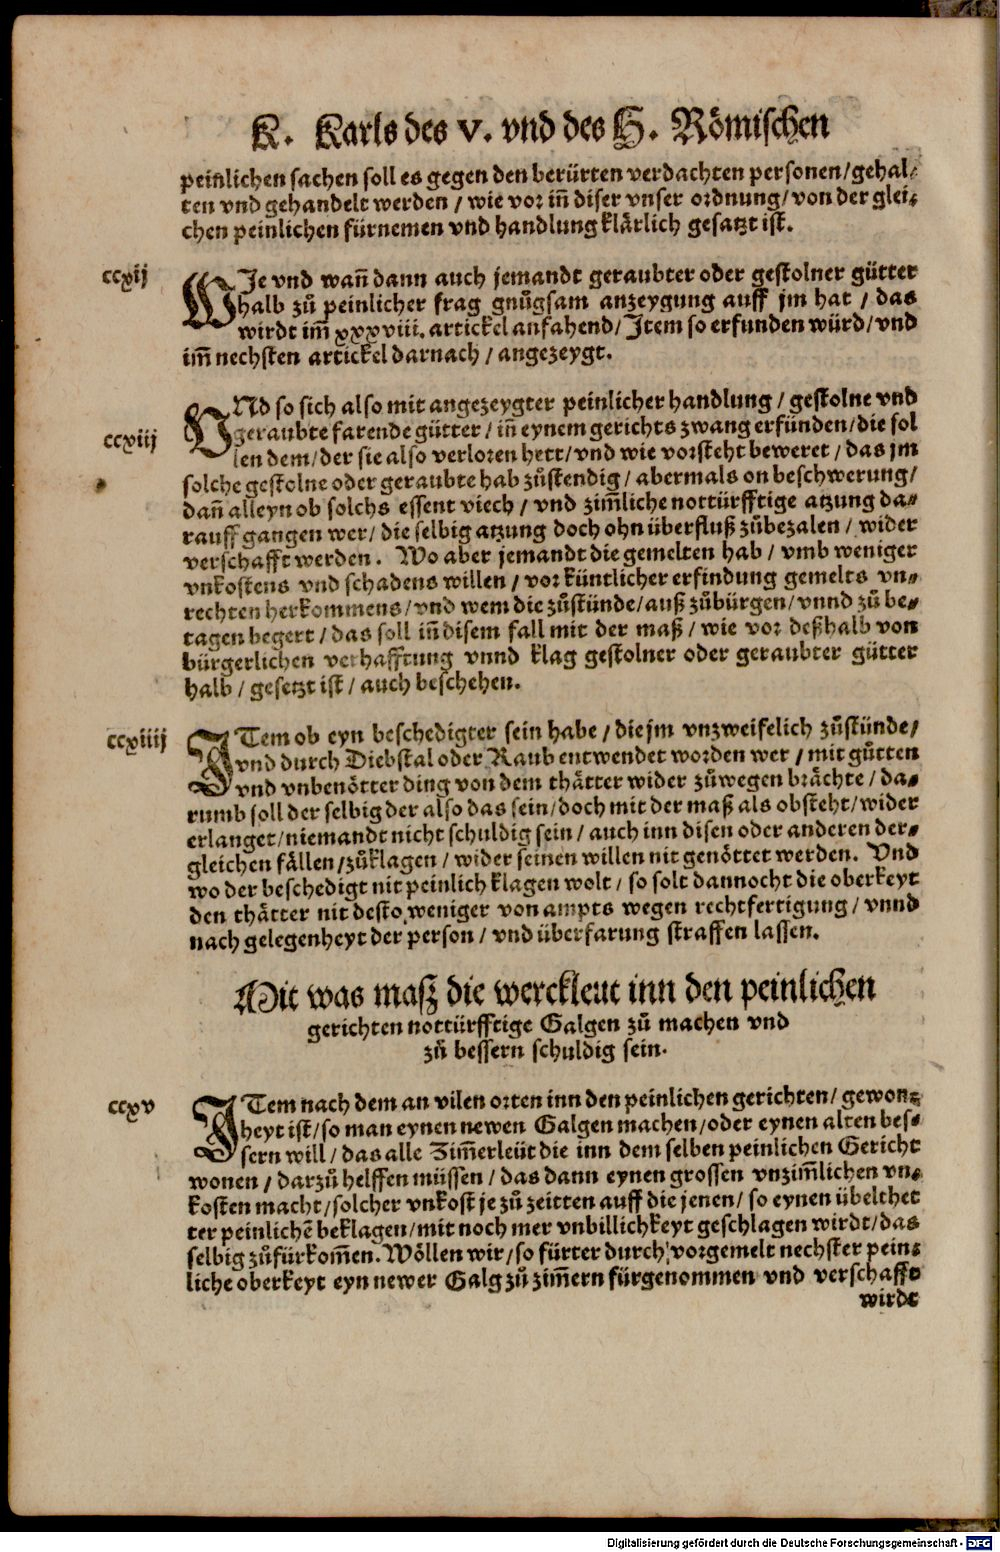 K. Karls des V. vnd des H. Römischen
peinlichen sachen soll es gegen den berürten verdachten personen/gehal⸗
ten vnd gehandelt werden / wie vor iñ diser vnser ordnung/von der glei⸗
chen peinlichen fürnemen vnd handlung klärlich gesatzt ist.
ccxij
WJe vnd wañ dann auch jemandt geraubter oder gestolner gütter
halb zů peinlicher frag gnůgsam anzeygung auff jm hat / das
wirdt im̃ xxxviii. artickel anfahend/Jtem so erfunden würd/vnd
im̃ nechsten artickel darnach/angezeygt.
ccxiij
VNd so sich also mit angezeygter peinlicher handlung/gestolne vnd
geraubte farende gütter/iñ eynem gerichts zwang erfünden/die sol
len dem/der sie also verloren hett/vnd wie vorsteht beweret/das jm
solche gestolne oder geraubte hab zůstendig/abermals on beschwerung/
dañ alleyn ob solchs essent viech / vnd zim̃liche nottürfftige atzung da⸗
rauff gangen wer/die selbig atzung doch ohn überfluß zůbezalen/wider
verschafft werden. Wo aber jemandt die gemelten hab / vmb weniger
vnkostens vnd schadens willen/vor küntlicher erfindung gemelts vn⸗
rechten herkommens/vnd wem die zůstünde/auß zůbürgen/vnnd zů be⸗
tagen begert/das soll iñ disem fall mit der maß / wie vor deßhalb von
bürgerlichen verhafftung vnnd klag gestolner oder geraubter gütter
halb/gesetzt ist/auch beschehen.
ccxiiij
JTem ob eyn beschedigter sein habe/die jm vnzweifelich zůstünde/
vnd durch Diebstal oder Raub entwendet worden wer/mit gůtten
vnd vnbenötter ding von dem thätter wider zůwegen brächte/da⸗
rumb soll der selbig der also das sein/doch mit der maß als obsteht/wider
erlanget/niemandt nicht schuldig sein/auch inn disen oder anderen der⸗
gleichen fällen/zůklagen/wider seinen willen nit genöttet werden. Vnd
wo der beschedigt nit peinlich klagen wolt/so solt dannocht die oberkeyt
den thätter nit desto weniger von ampts wegen rechtfertigung/vnnd
nach gelegenheyt der person/vnd überfarung straffen lassen.
Mit was maß die werckleut inn den peinlichen
gerichten nottürfftige Galgen zů machen vnd
zů bessern schuldig sein.
ccxv
JTem nach dem an vilen orten inn den peinlichen gerichten/gewon⸗
heyt ist/so man eynen newen Galgen machen/oder eynen alten bes⸗
sern will/das alle Zim̃erleüt die inn dem selben peinlichen Gericht
wonen / darzů helffen müssen/das dann eynen grossen vnzim̃lichen vn⸗
kosten macht/solcher vnkost je zů zeitten auff die jenen/so eynen übelthet
ter peinlichẽ beklagen/mit noch mer vnbillichkeyt geschlagen wirdt/das
selbig zůfürkom̃en. Wöllen wir/so fürter durch vorgemelt nechster pein⸗
liche oberkeyt eyn newer Galg zů zim̃ern fürgenommen vnd verschafft
wirdt
Digitalisierung gefördert durch die Deutsche Forschungsgemeinschaft - DFG